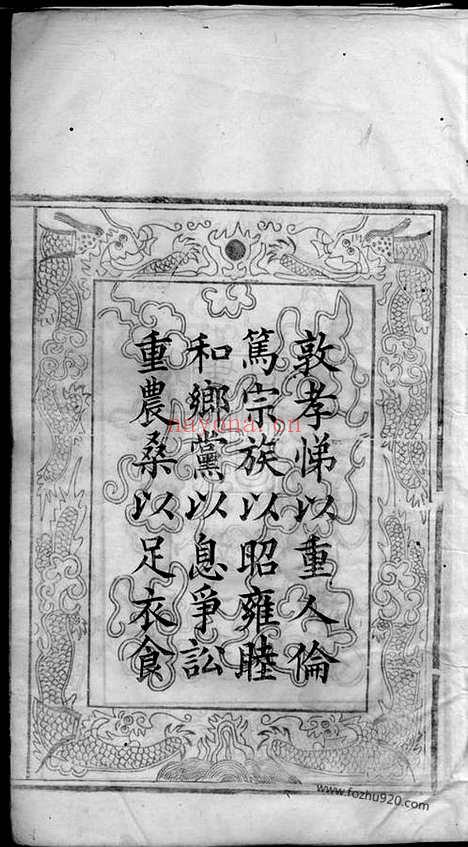 敦孝悌以重人倫
篤宗族以昭雍睦
和鄉黨以息爭訟
重農桑以足衣食
nayona.cn
www.fozhu920.com